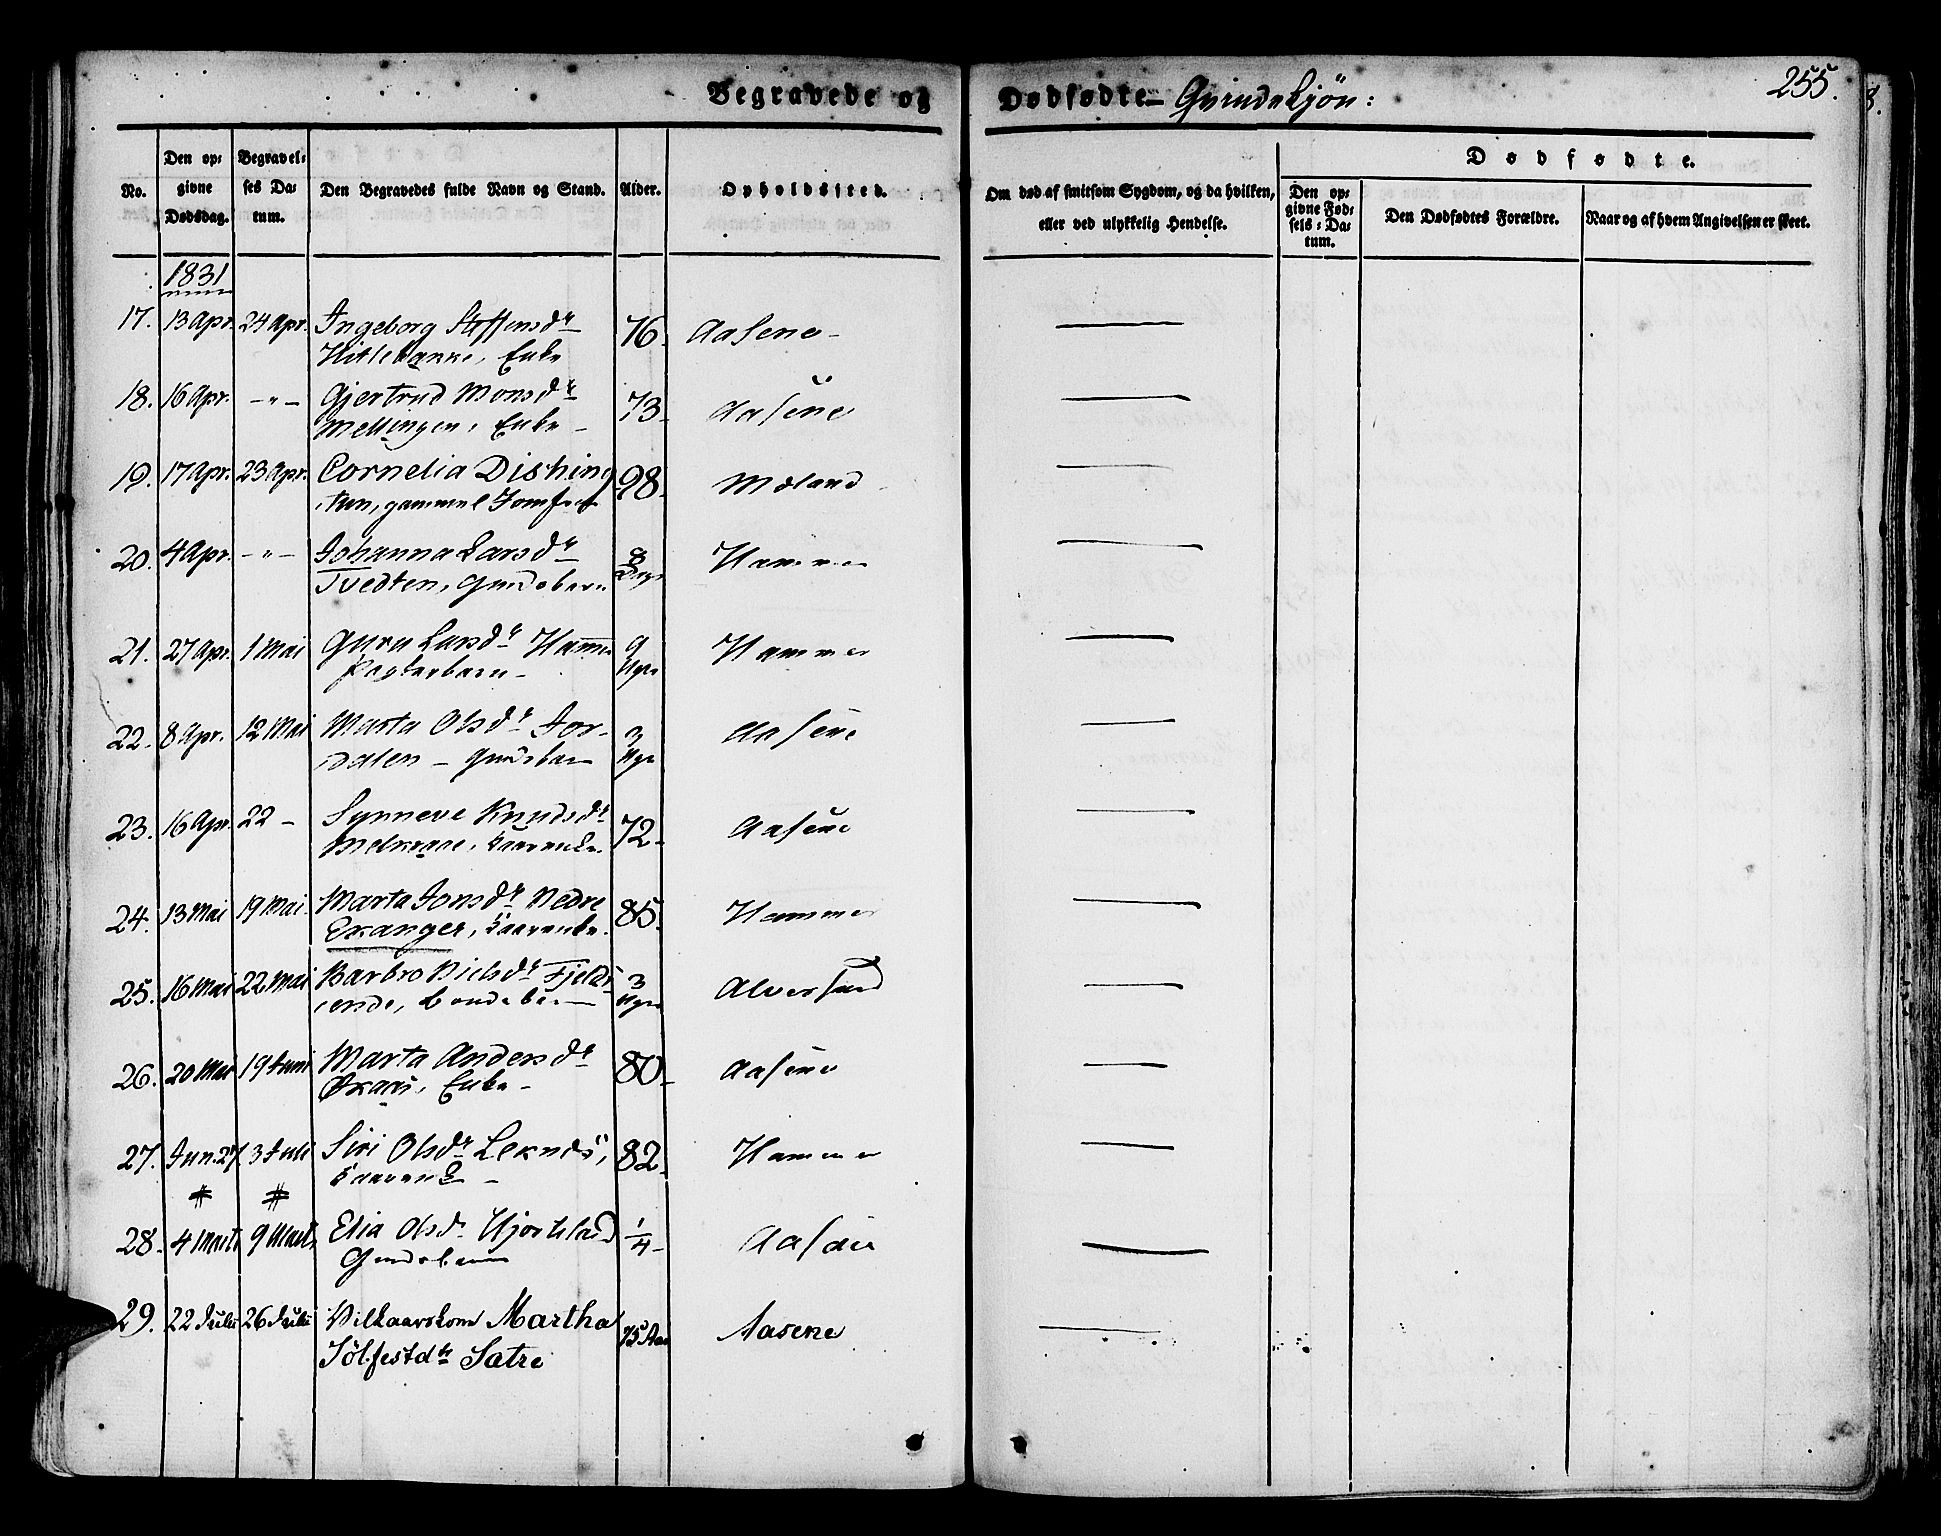 Begravede og Dødfødte — Qvindekjön: 255.
No. Den opgivne Dødsdag. Begravelses Datum. Den Begravedes fulde Navn og Stand. Alder. Opholdssted. Om død af smitsom Sygdom, og da hvilken, eller ved ulykkelig Hendelse. Dødfødte. Den opgivne Fødsels-Datum. Den Dødfødtes Forældre. Naar og af hvem Angivelsen er skeet.
1831
17. 13 Apr. 24 Apr. Ingeborg Steffensdr 76. Aasene —
Hitlebakke, Enke
18. 16 Apr. — " — Gjertrud Monsdr 73. Aasene —
Mellingen, Enke
19. 17 Apr. 23 Apr. Cornelia Dishing 98. Mæland —
ton, gammel Jomfru
20. 4 Apr. — " — Johanna Larsdr 8 Dage Hammer —
Tvedten, Gaardsbarn
21. 27 Apr. 1 Mai Guru Larsdr Hammer 9 Uger Hammer —
22. 8 Apr. 12 Mai Marta Olsdr Jor- 3 Uger Aasene —
dalen — Gaardsbarn
23. 16 Apr. 22 — Synneve Knudsdr 72 Aasene —
Melkeraae, Kaarenke.
24. 13 Mai 19 Mai Marta Jonsdr Nedre 85. Hammer —
Exanger, Kaarenke.
25. 16 Mai 22 Mai Barbro Nielsdr Fjelds- 3 Uger Alversund —
ende, Bondebarn
26. 20 Mai 19 Juni Marta Andersdr 80. Aasene —
Øxaas, Enke —
27. Jun. 27 3 Juli Siri Olsdr Leknæs, 82. Hammer —
Kaarenke —
# #
28. 4 Marti 9 Marti Elia Olsdr Hjortland 1/4 Aasene —
Gaardsbarn
29. 22 Julii 26 Julii Vilkaarskone Martha 75 Aar Aasene —
Sölfestdtr Sætre